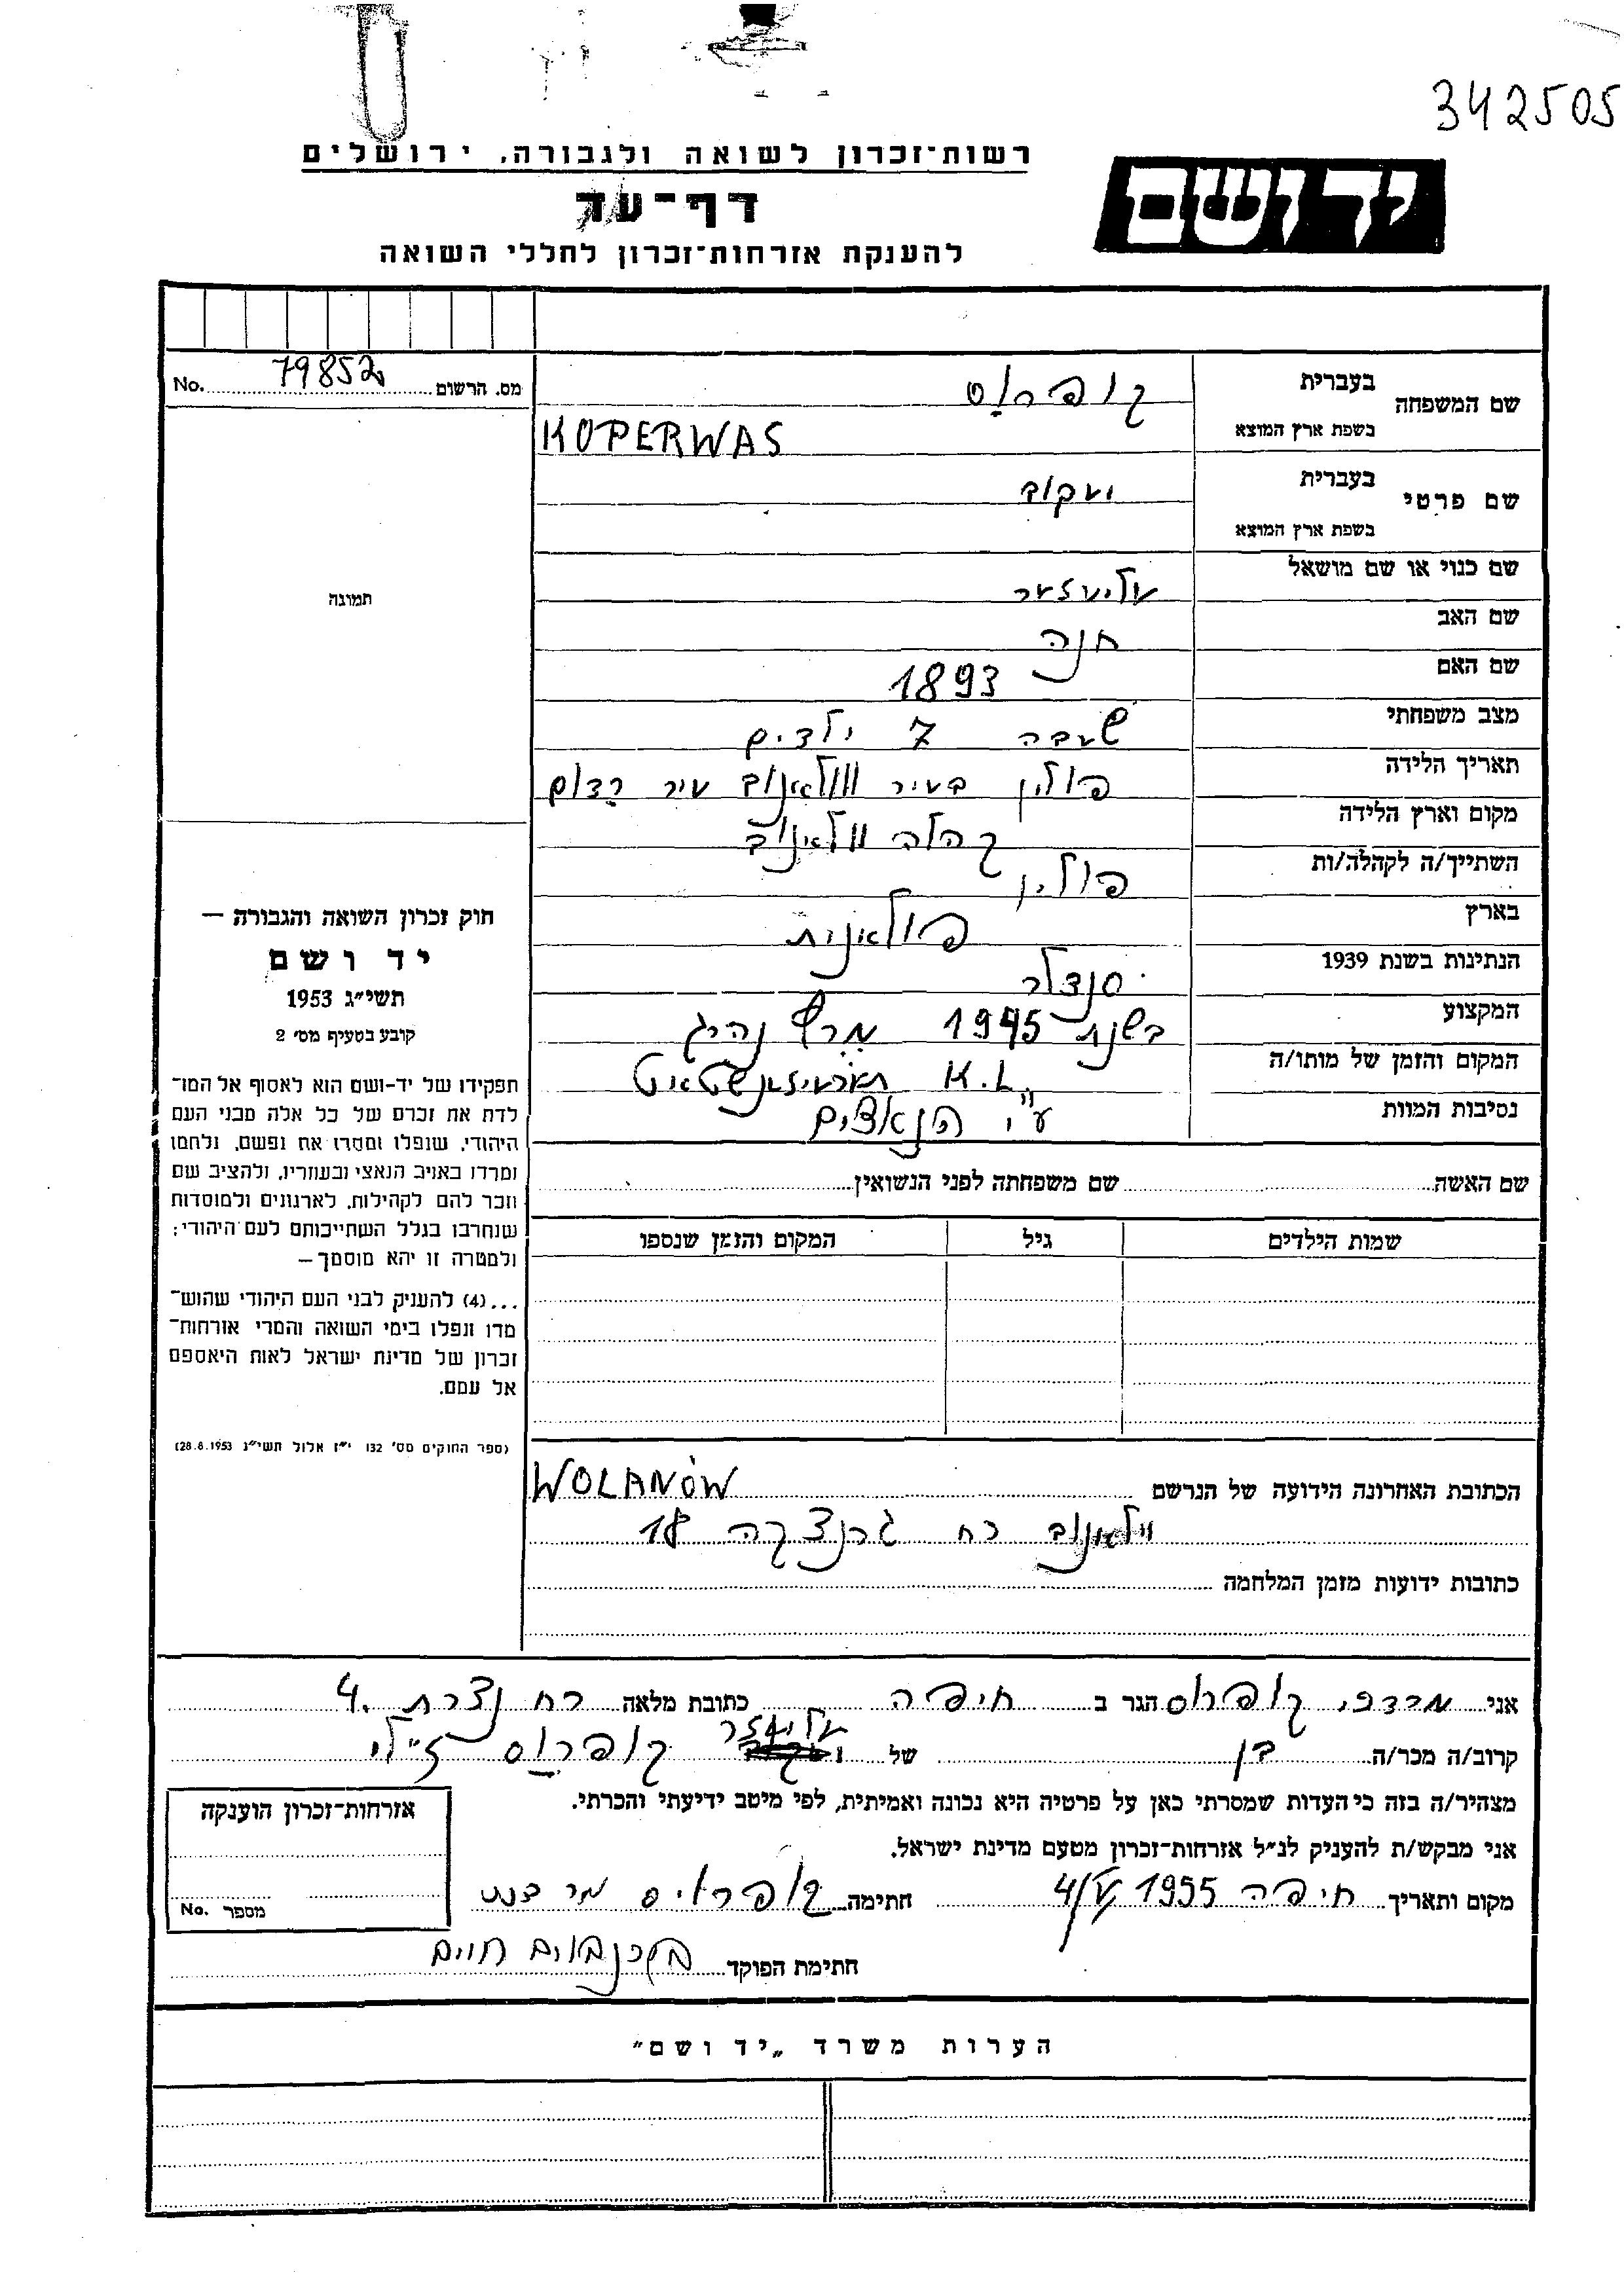 342505
רשות־זכרון לשואה ולגבורה, ירושלים
יד ושם
דף־עד
להענקת אזרחות־זכרון לחללי השואה
מס. הרשום 79852 No.
שם המשפחה
בעברית קופרוַס
בשפת ארץ המוצא KOPERWAS
שם פרטי
בעברית יעקוב
בשפת ארץ המוצא
שם כנוי או שם מושאל
עליעזער
שם האב
חנה
שם האם
1893
מצב משפחתי
שבעה 7 ילדים
תאריך הלידה
פולין בעיר וולאנוב עיר רַדום
מקום וארץ הלידה
קהלה וולאנוב
השתייך/ה לקהלה/ות
פולין
בארץ
פולאנית
הנתינות בשנת 1939
סנדלר
המקצוע
בשנת 1945
המקום והזמן של מותו/ה
K.L.
נסיבות המוות
ע"י הנאצים
תמונה
חוק זכרון השואה והגבורה —
יד ושם
תשי״ג 1953
קובע בסעיף מס׳ 2
תפקידו של יד-ושם הוא לאסוף אל המו־
לדת את זכרם של כל אלה מבני העם
היהודי, שנפלו ומסרו את נפשם, נלחמו
ומרדו באויב הנאצי ובעוזריו, ולהציב שם
וזכר להם לקהילות, לארגונים ולמוסדות
שנחרבו בגלל השתייכותם לעם היהודי;
ולמטרה זו יהא מוסמך —
...(4) להעניק לבני העם היהודי שהוש־
מדו ונפלו בימי השואה והמרי אזרחות־
זכרון של מדינת ישראל לאות היאספם
אל עמם.
(ספר החוקים מס׳ 132 י״ז אלול תשי״ג 28.8.1953)
שם האשה שם משפחתה לפני הנשואין
שמות הילדים גיל המקום והזמן שנספו
הכתובת האחרונה הידועה של הנרשם WOLANÓW
וילאנוב רח גרנצקה 18
כתובות ידועות מזמן המלחמה
אני מרדכי קופרוס הגר ב חיפה כתובת מלאה רח נצרת 4.
קרוב/ה מכר/ה בן של עליעזר קופרוַס ז״לי
מצהיר/ה בזה כי העדות שמסרתי כאן על פרטיה היא נכונה ואמיתית, לפי מיטב ידיעתי והכרתי.
אני מבקש/ת להעניק לנ״ל אזרחות־זכרון מטעם מדינת ישראל.
מקום ותאריך חיפה 1955 4/V חתימה
חתימת הפוקד
אזרחות־זכרון הוענקה
מספר No.
הערות משרד „יד ושם״